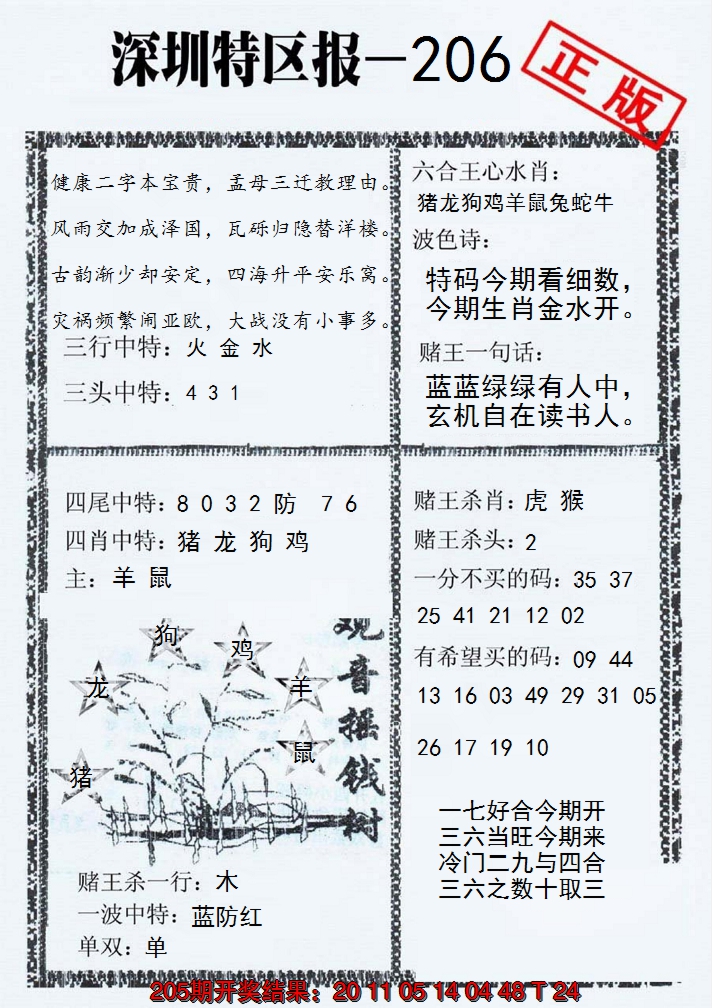 深圳特区报—206
正版
健康二字本宝贵，孟母三迁教理由。
风雨交加成泽国，瓦砾归隐替洋楼。
古韵渐少却安定，四海升平安乐窝。
灾祸频繁闹亚欧，大战没有小事多。
三行中特：火 金 水
三头中特：4 3 1
六合王心水肖：
猪龙狗鸡羊鼠兔蛇牛
波色诗：
特码今期看细数，
今期生肖金水开。
赌王一句话：
蓝蓝绿绿有人中，
玄机自在读书人。
四尾中特：8 0 3 2 防 7 6
四肖中特：猪 龙 狗 鸡
主：羊 鼠
狗
鸡
龙
羊
鼠
猪
观音摇钱树
赌王杀一行：木
一波中特：蓝防红
单双：单
赌王杀肖：虎 猴
赌王杀头：2
一分不买的码：35 37
25 41 21 12 02
有希望买的码：09 44
13 16 03 49 29 31 05
26 17 19 10
一七好合今期开
三六当旺今期来
冷门二九与四合
三六之数十取三
205期开奖结果：20 11 05 14 04 48 T 24